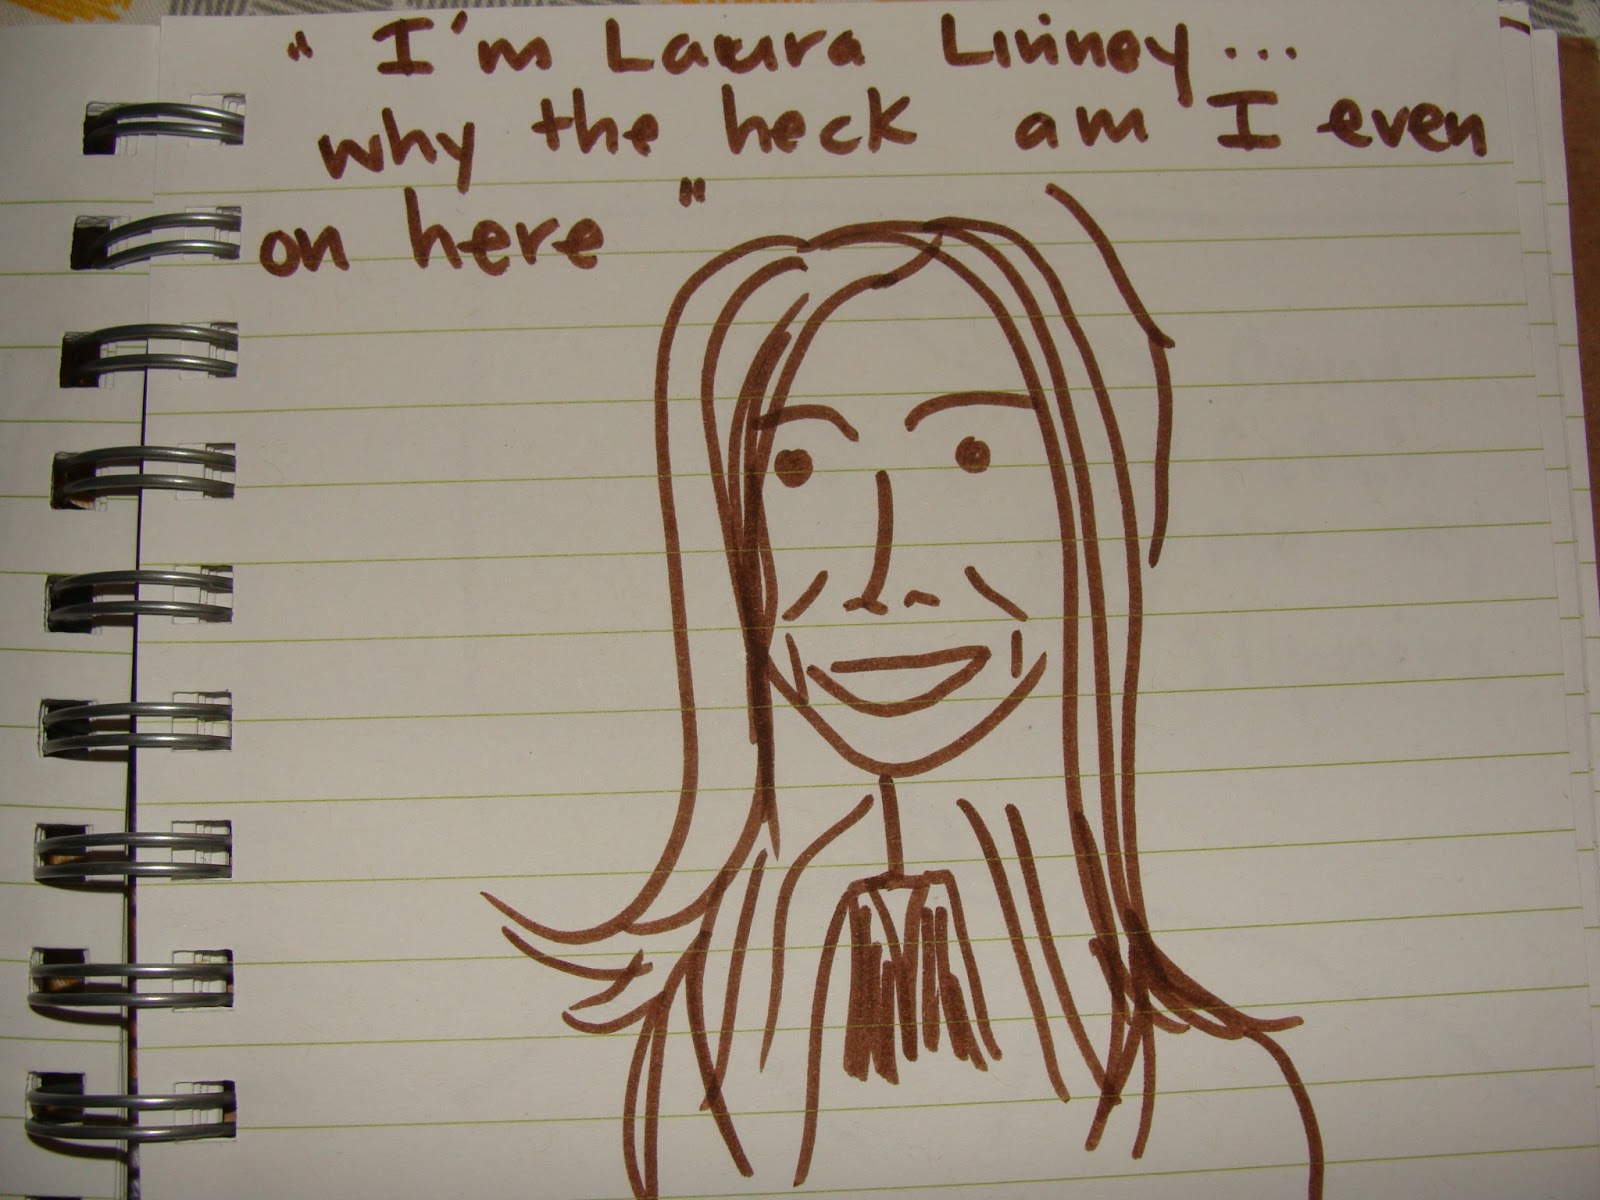 " I'm Laura Linney...
why the heck am I even
on here "